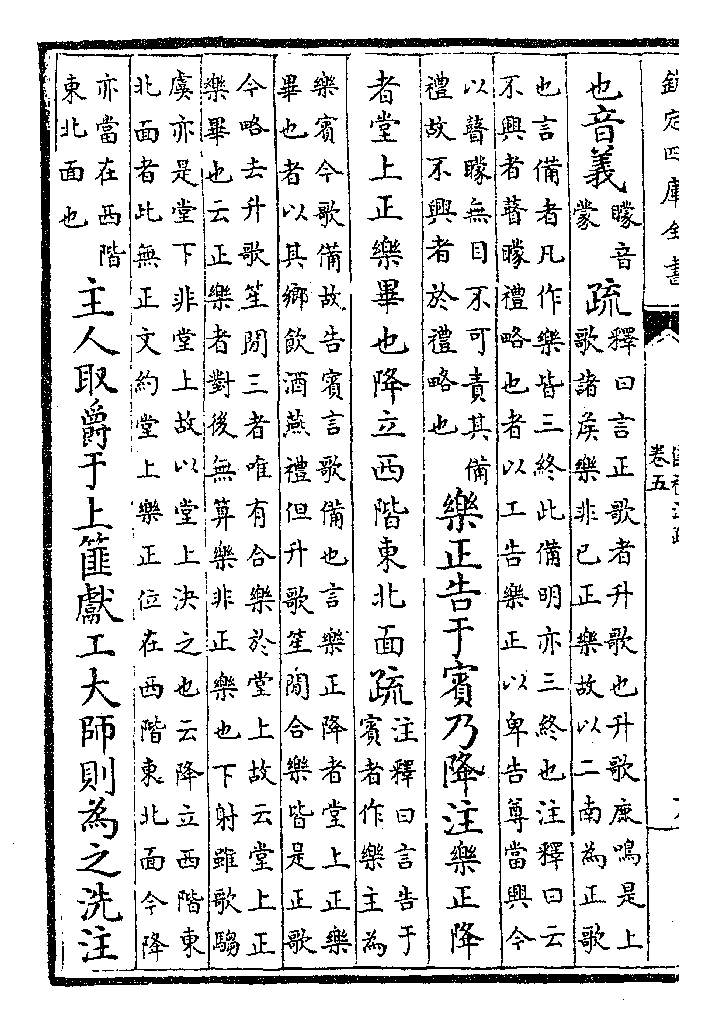 欽定四庫全書
卷五
也音義
矇音
蒙
疏
釋曰言正歌者升歌也升歌鹿鳴是上
歌諸侯樂非己正樂故以二南為正歌
也言備者凡作樂皆三終此備明亦三終也注釋曰云
不興者瞽矇禮略也者以工告樂正以卑告尊當興今
以瞽矇無目不可責其備
禮故不興者於禮略也
樂正告于賓乃降注樂正降
者堂上正樂畢也降立西階東北面疏
注釋曰言告于
賓者作樂主為
樂賓今歌備故告賓言歌備也言樂正降者堂上正樂
畢也者以其鄉飲酒燕禮但升歌笙閒合樂皆是正歌
今略去升歌笙閒三者唯有合樂於堂上故云堂上正
樂畢也云正樂者對後無算樂非正樂也下射雖歌騶
虞亦是堂下非堂上故以堂上決之也云降立西階東
北面者此無正文約堂上樂正位在西階東北面今降
亦當在西階
東北面也
主人取爵于上篚獻工大師則為之洗注